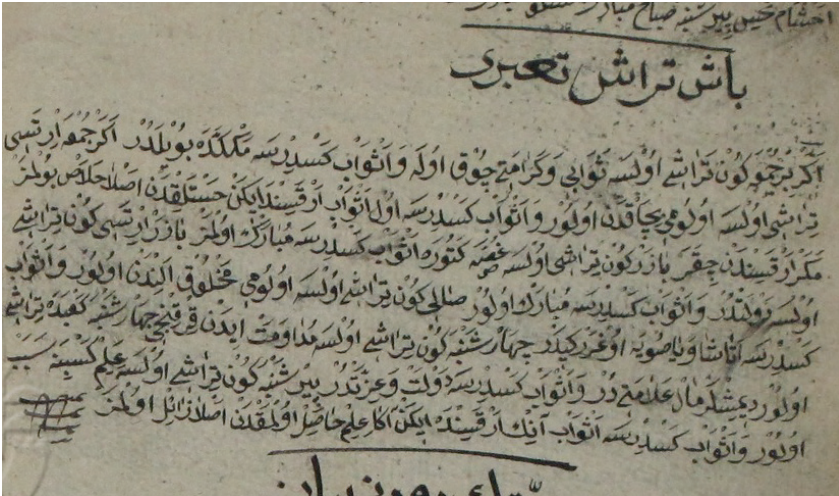 احتشام خميس پير شنبه صباح مبارك
باش تراش تعبرى
اكر بر جمعه كون تراشى اولسه ثوابى و كرامتى چوق اوله و اثواب كسدرسه ملكنده بويلدر اكر جمعه ارتسى
تراشى اولسه اولومى بچاقدن اولور و اثواب كسدرسه اول اثواب ارقسنده ايكن خستلقدن اصلا خلاص بولمز
مكر ارقسندن چقر بازر كون تراشى اولسه غصه كتوره اثواب كسدرسه مبارك اولمز بازار ارتسى كون تراشى
اولسه دولتدر و اثواب كسدرسه مبارك اولور صالى كون تراشى اولسه اولومى مخلوق الندن اولور و اثواب
كسدرسه اتاشا و يا صويه اوغرر كيدر چهار شنبه كون تراشى اولسه مداومت ايدن قرقنجى چهار شنبه كعبده تراشى
اولور ديمشلر مال علامتى در و اثواب كسدرسه دولت و عزتدر پير شنبه كون تراشى اولسه علم كسبنه سبب
اولور و اثواب كسدرسه اثواب انك ارقسنده ايكن اكا علم حاصل اولمقدن اصلا زائل اولمز